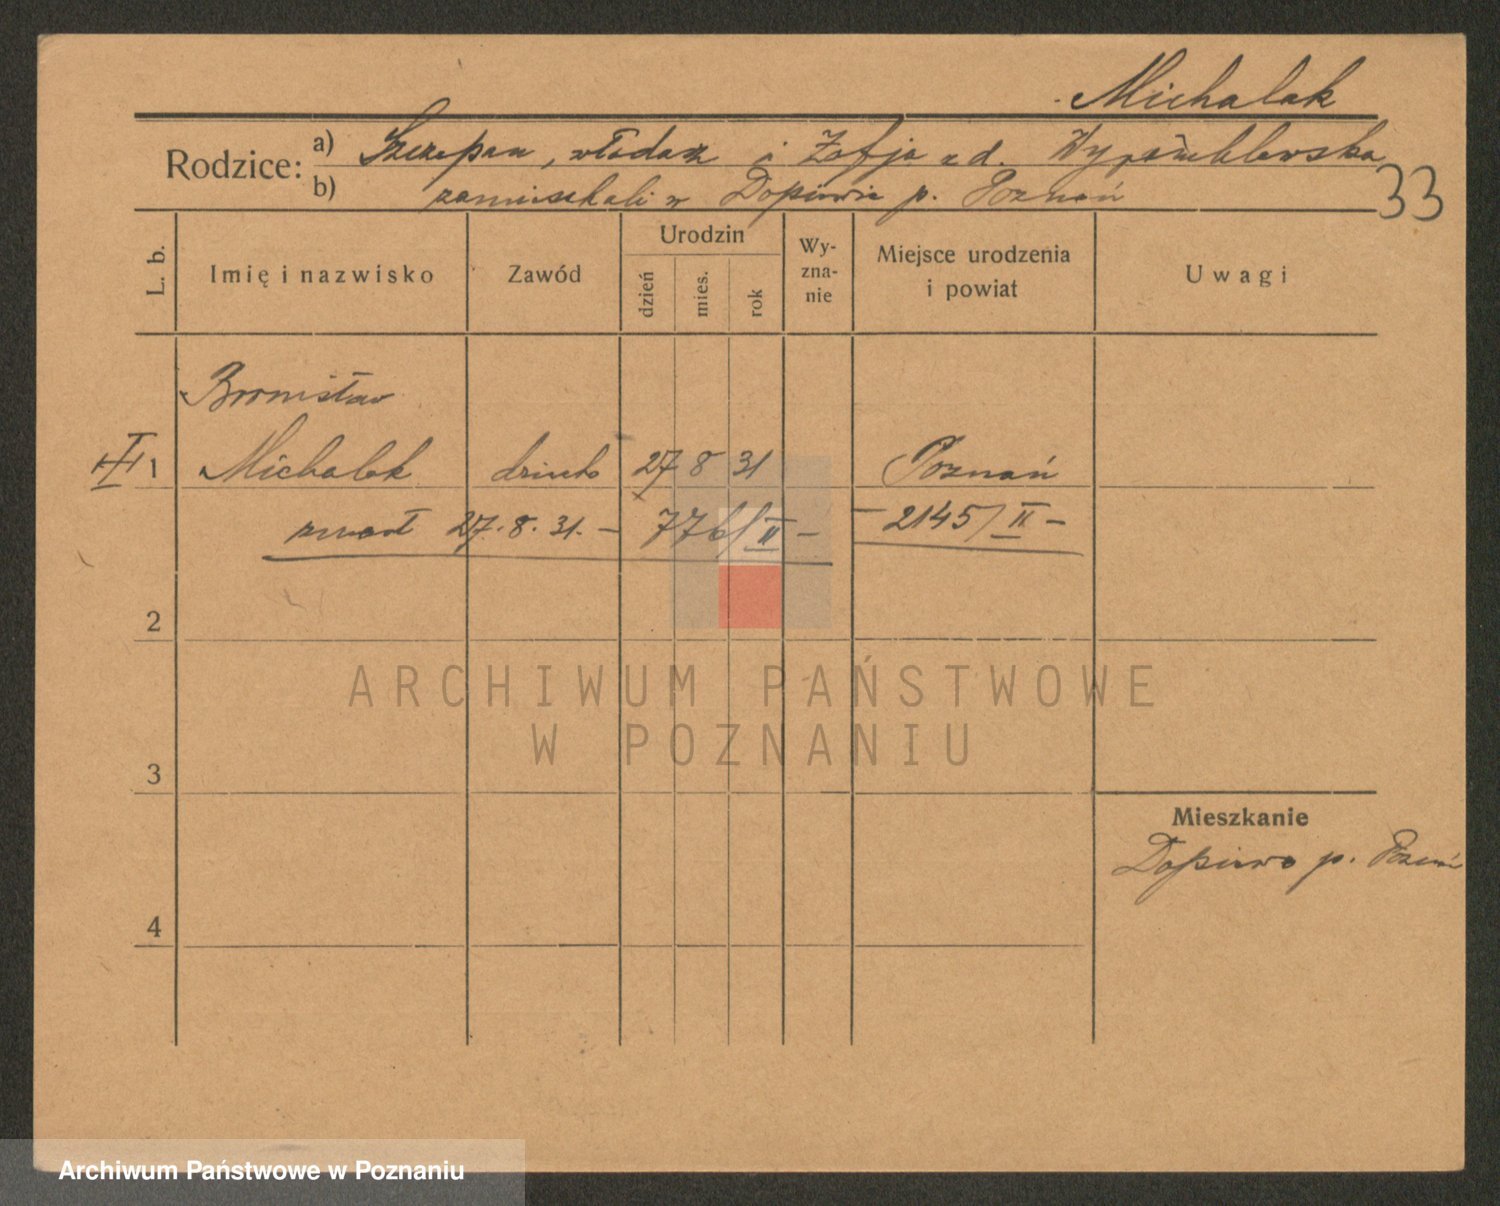 Michalak
Rodzice: a) Szczepan, włodarz i Zofja z d.
b) zamieszkali w Dopiewie p. Poznań
33
L. b.
Imię i nazwisko
Zawód
Urodzin
dzień
mies.
rok
Wy-
zna-
nie
Miejsce urodzenia
i powiat
Uwagi
Bronisław
1 Michalak dziecko 27 8 31 Poznań
zmarł 27.8.31. – 776/II – – 2145/II –
2
ARCHIWUM PAŃSTWOWE
W POZNANIU
3
Mieszkanie
Dopiewo p. Poznań
4
Archiwum Państwowe w Poznaniu